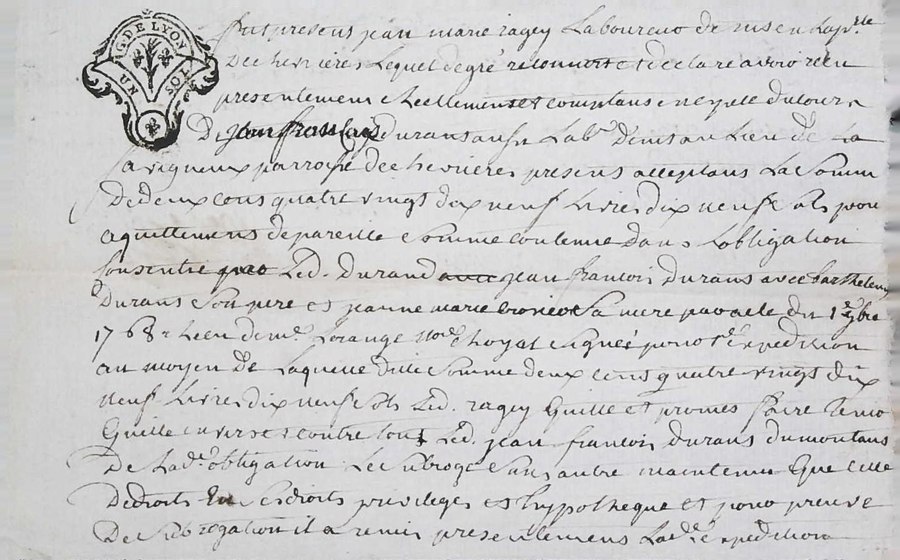 G. DE LYON
UN SOL
fut present jean marie ragey Laboureur de
Lequel de gré reconnoit et declare avoir receu
presentement reellement et comptant en
De jean françois durand Lab.r Dem.t au Lieu de La
parroisse de present acceptant La Somme
De deux cens quatre vingt dix neuf Livres dix neuf sols pour
aquittement de pareille Somme contenue dans Lobligation
Led. Durand jean françois durand avec barthelemy
Durand Son pere et jeanne marie Sa mere du 1.er 9bre
1768 no.re royal pour expedition
au moyen de Laquelle ditte Somme deux cens quatre vingt dix
neuf Livres dix neuf sols Led. ragey Quitte et promet faire tenir
Quitte envers et contre tous Led. jean françois durand du montant
De Lad.e obligation Le Subroge Sans autre maintenue Que celle
De droit En Ses droits privileges et hypotheque et pour preuve
De Subrogation il a remis presentement Lad.e expedition